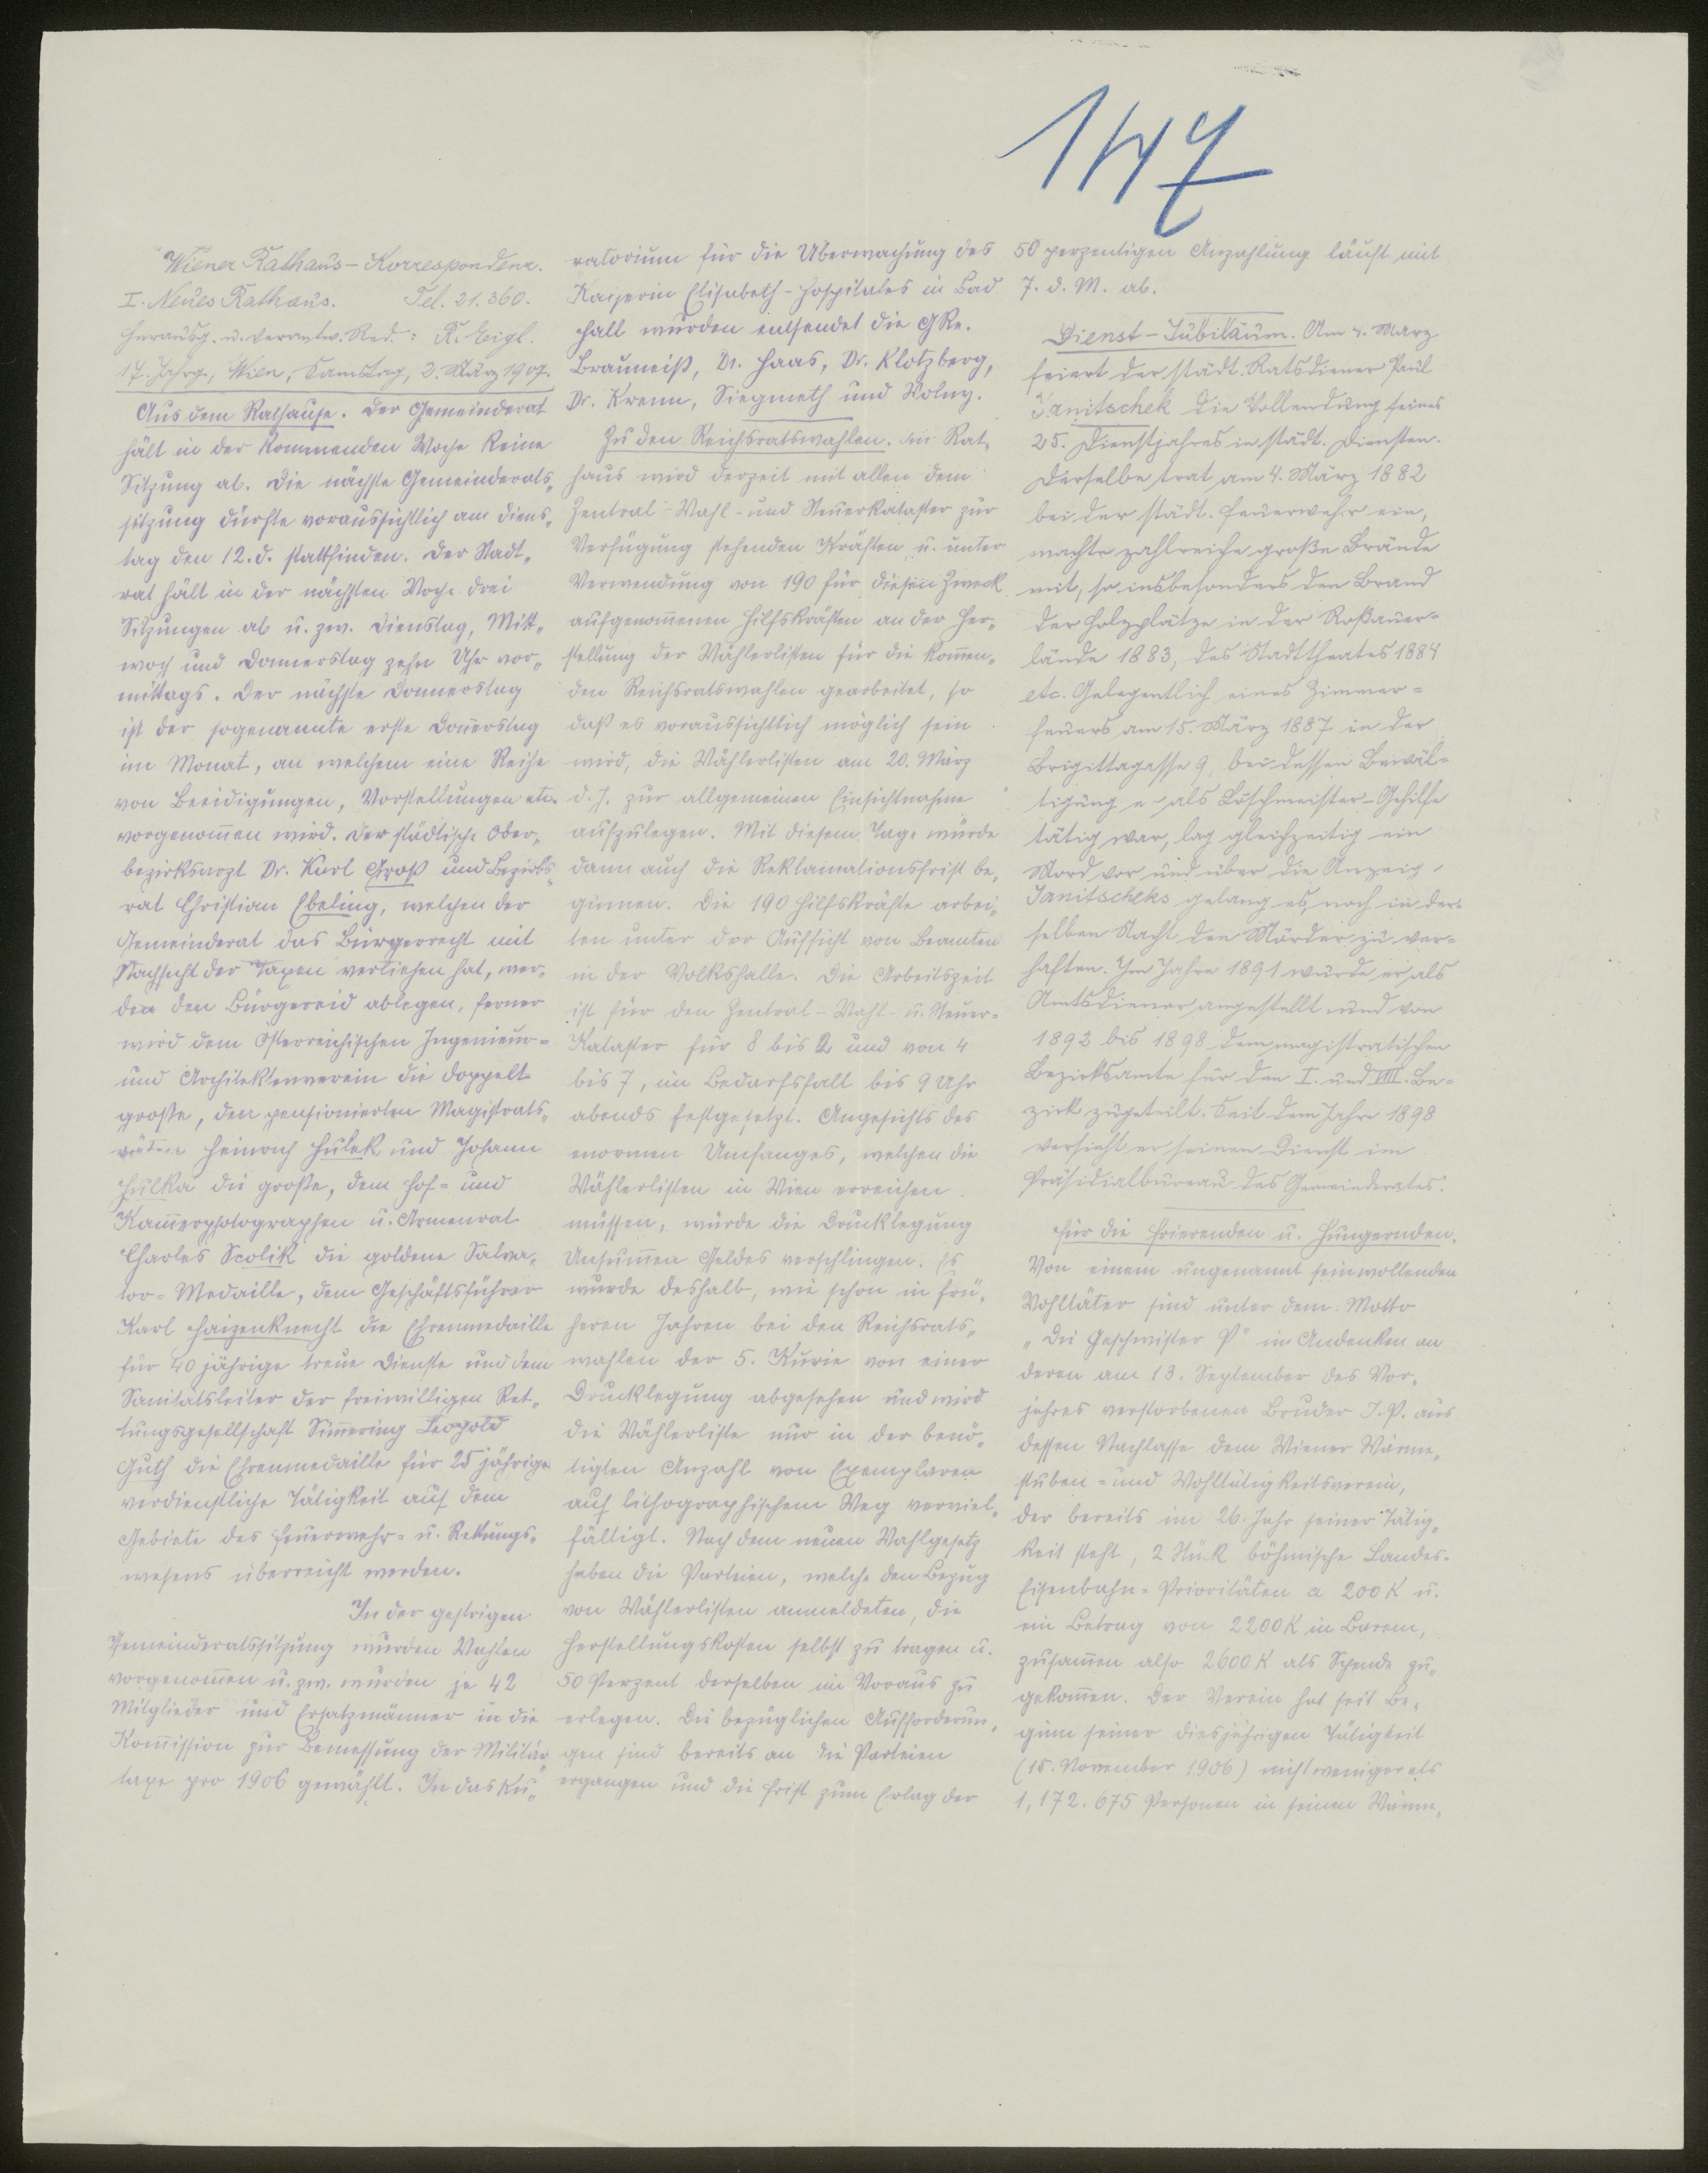 147
Wiener Rathaus-Korrespondenz.
I. Neues Rathaus. Tel. 21.360.
Herausg. u. verantw. Red.: R. Eigl.
17. Jahrg., Wien, Samstag, 2. März 1907.
Aus dem Rathause. Der Gemeinderat
hält in der kommenden Woche keine
Sitzung ab. Die nächste Gemeinderats-
sitzung dürfte voraussichtlich am Diens-
tag den 12. d. stattfinden. Der Stadt-
rat hält in der nächsten Woche drei
Sitzungen ab u. zw. Dienstag, Mitt-
woch und Donnerstag zehn Uhr vor-
mittags. Der nächste Donnerstag
ist der sogenannte erste Donnerstag
im Monat, an welchem eine Reihe
von Beeidigungen, Vorstellungen etc.
vorgenommen wird. Der städtische Ober-
bezirksarzt Dr. Karl Groß und Bezirks-
rat Christian Ebeling, welchen der
Gemeinderat das Bürgerrecht mit
Nachsicht der Taxen verliehen hat, wer-
den den Bürgereid ablegen, ferner
wird dem Österreichischen Ingenieur-
und Architektenverein die doppelt
große, den pensionierten Magistrats-
räten Heinrich Hulek und Johann
Hulka die große, dem Hof- und
Kammerphotographen u. Armenrat
Charles Scolik die goldene Salva-
tor-Medaille, dem Geschäftsführer
Karl Haizenknecht die Ehrenmedaille
für 40 jährige treue Dienste und dem
Sanitätsleiter der freiwilligen Ret-
tungsgesellschaft Simmering Leopold
Guth die Ehrenmedaille für 25 jährige
verdienstliche Tätigkeit auf dem
Gebiete des Feuerwehr- u. Rettungs-
wesens überreicht werden.
In der gestrigen
Gemeinderatssitzung wurden Wahlen
vorgenommen u. zw. wurden je 42
Mitglieder und Ersatzmänner in die
Kommission zur Bemessung der Militär-
taxe pro 1906 gewählt. In das Ku-
ratorium für die Überwachung des
Kaiserin Elisabeth-Hospitales in Bad
Hall wurden entsendet die GRe.
Brauneiß, Dr. Haas, Dr. Klotzberg,
Dr. Krenn, Siegmeth und Wolny.
Zu den Reichsratswahlen. Im Rat-
haus wird derzeit mit allen dem
Zentral-Wahl- und Steuerkataster zur
Verfügung stehenden Kräften u. unter
Verwendung von 190 für diesen Zweck
aufgenommenen Hilfskräften an der Her-
stellung der Wählerlisten für die kommen-
den Reichsratswahlen gearbeitet, so
daß es voraussichtlich möglich sein
wird, die Wählerlisten am 20. März
d. J. zur allgemeinen Einsichtnahme
aufzulegen. Mit diesem Tage würde
dann auch die Reklamationsfrist be-
ginnen. Die 190 Hilfskräfte arbei-
ten unter der Aufsicht von Beamten
in der Volkshalle. Die Arbeitszeit
ist für den Zentral-Wahl- u. Steuer-
Kataster für 8 bis 2 und von 4
bis 7, im Bedarfsfall bis 9 Uhr
abends festgesetzt. Angesichts des
enormen Umfanges, welchen die
Wählerlisten in Wien erreichen
müssen, würde die Drucklegung
Unsummen Geldes verschlingen. Es
wurde deshalb, wie schon in frü-
heren Jahren bei den Reichsrats-
wahlen der 5. Kurie von einer
Drucklegung abgesehen und wird
die Wählerliste nur in der benö-
tigten Anzahl von Exemplaren
auf lithographischem Weg verviel-
fältigt. Nach dem neuen Wahlgesetz
haben die Parteien, welche den Bezug
von Wählerlisten anmeldeten, die
Herstellungskosten selbst zu tragen u.
50 Perzent derselben im Voraus zu
erlegen. Die bezüglichen Aufforderun-
gen sind bereits an die Parteien
ergangen und die Frist zum Erlag der
50 perzentigen Anzahlung läuft mit
7. d. M. ab.
Dienst-Jubiläum. Am 4. März
feiert der städt. Ratsdiener Paul
Janitschek die Vollendung seines
25. Dienstjahres in städt. Diensten.
Derselbe trat am 4. März 1882
bei der städt. Feuerwehr ein,
machte zahlreiche große Brände
mit, so insbesonders den Brand
der Holzplätze in der Roßauer-
lände 1883, des Stadttheates 1884
etc. Gelegentlich eines Zimmer-
feuers am 15. März 1887 in der
Brigittagasse 9, bei dessen Bewäl-
tigung er als Löschmeister-Gehilfe
tätig war, lag gleichzeitig ein
Mord vor und über die Anzeige
Janitscheks gelang es, noch in der-
selben Nacht den Mörder zu ver-
haften. Im Jahre 1891 wurde er als
Amtsdiener angestellt und von
1892 bis 1898 dem magistratischen
Bezirksamte für den I. und VIII. Be-
zirk zugeteilt. Seit dem Jahre 1898
versieht er seinen Dienst im
Präsidialbureau des Gemeinderates.
Für die Frierenden u. Hungernden.
Von einem ungenannt sein wollenden
Wohltäter sind unter dem Motto
„Die Geschwister P" im Andenken an
deren am 13. September des Vor-
jahres verstorbenen Bruder J. P. aus
dessen Nachlasse dem Wiener Wärme-
stuben- und Wohltätigkeitsverein,
der bereits im 26. Jahr seiner Tätig-
keit steht, 2 Stück böhmische Landes-
Eisenbahn-Prioritäten a 200 K u.
ein Betrag von 2200 K in Barem,
zusammen also 2600 K als Spende zu-
gekommen. Der Verein hat seit Be-
ginn seiner diesjährigen Tätigkeit
(15. November 1906) nicht weniger als
1,172.675 Personen in seinen Wärme-